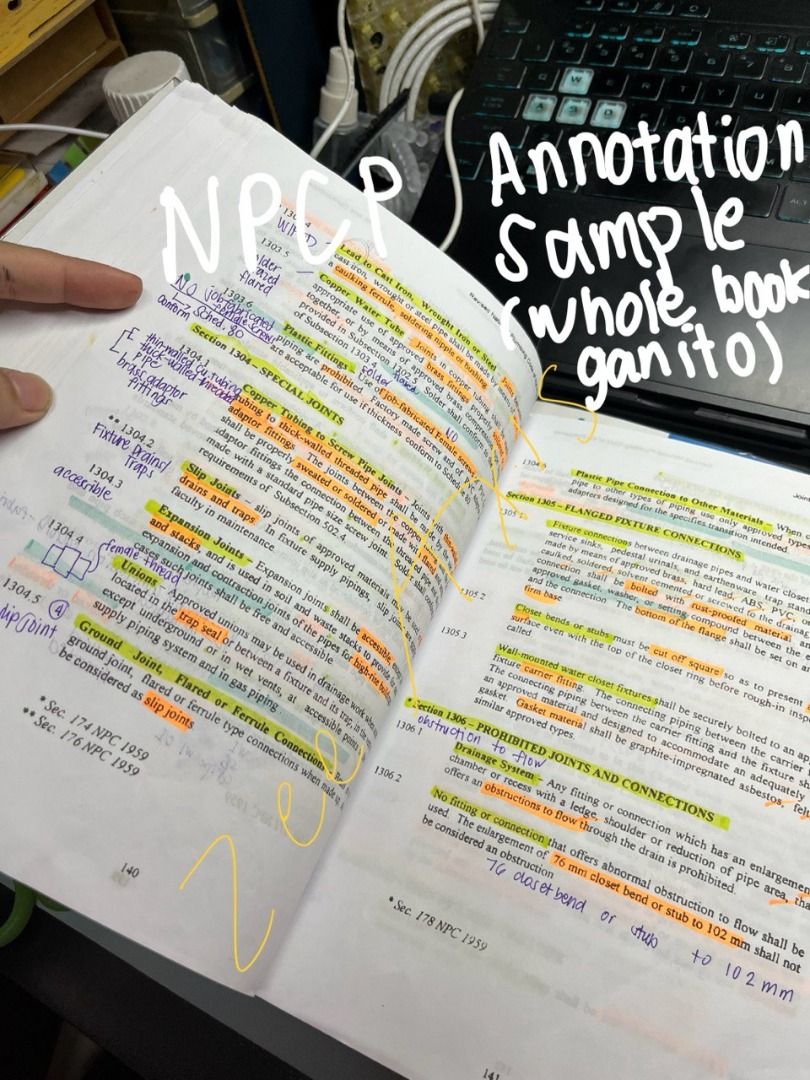 NPCP
Annotation
Sample
(whole book
ganito)
zee
1303.4
1303.5
flared
Lead to Cast Iron, Wrought Iron or Steel
cast iron, wrought or steel pipe shall be made by
caulking ferrule, soldering nipple or bushing
Copper Water Tube – Joints in copper tubing
appropriate use of approved brass
together, or by means of approved
provided in Subsection
of Subsection 1303.
1303.6
No job fabricated
female screw
conform → Sched. 80
Plastic Fittings
Use of job-fabricated female screw
piping are prohibited. Factory made screw
are acceptable for use if thickness conform to Sched.
NO
Section 1304 – SPECIAL JOINTS
1304.1
thin-walled cu tubing
thick-walled threaded
pipe
brass adaptor
fittings
Copper Tubing to Screw Pipe Joints – Joints
tubing to thick-walled threaded pipe shall be made
adaptor fittings. The joints between the copper
shall be properly sweated or soldered or made with
adaptor fittings the connection between the threaded
made with a standard pipe size screw joint. Solder shall
requirements of Subsection 502.4.
** 1304.2
Fixture drains/
traps
Slip Joints – slip joints of approved materials
drains and traps. In fixture supply pipings, slip joints
faculty in maintenance.
1304.3
accessible
Expansion Joints – Expansion Joints shall be accessible,
and stacks and is used in soil and waste stacks to provide
expansion and contraction joints of the pipes for high-rise
cases such joints shall be free and accessible.
1304.4
female thread
Unions – Approved unions may be used in drainage work when
located in the trap seal or between a fixture and its trap; in the
except underground or in wet vents, at accessible points
supply piping system and in gas piping
1304.5 ④
slip joint
Ground Joint, Flared or Ferrule Connections –
ground joint, flared or ferrule type connections when made
be considered as slip joints
* Sec. 174 NPC 1959
** Sec. 176 NPC 1959
140
1304.
Plastic Pipe Connection to Other Materials – When
pipe to other types of piping use only approved
adapters designed for the specifies transition intended.
Section 1305 – FLANGED FIXTURE CONNECTIONS
1305.
Fixture connections between drainage pipes and water closet
service sinks, pedestal urinals, and earthenware trap stand
made by means of approved brass, hard lead, ABS, PVC
caulked, soldered, solvent cemented or screwed to the drain
connection shall be bolted with rust-proofed material
approved gasket, washer, or setting compound between the
and the connection. The bottom of the flange shall be set on
firm base
1305.2
Closet bends or stubs must be cut off square so as to present
surface even with the top of the closet ring before rough-in
called
1305.3
Wall-mounted water closet fixtures shall be securely bolted to an
fixture carrier fitting. The connecting piping between the carrier
The connecting piping between the carrier fitting and the fixture
an approved material and designed to accommodate an adequately
gasket. Gasket material shall be graphite-impregnated asbestos, felt
similar approved types.
* Section 1306 – PROHIBITED JOINTS AND CONNECTIONS
obstruction to flow
1306.1
Drainage System – Any fitting or connection which has an enlargement
chamber or recess with a ledge, shoulder or reduction of pipe area, that
offers an obstructions to flow through the drain is prohibited.
1306.2
No fitting or connection that offers abnormal obstruction to flow shall be
used. The enlargement of 76 mm closet bend or stub to 102 mm shall not
be considered an obstruction
76 closet bend or stub to 102 mm
* Sec. 178 NPC 1959
141